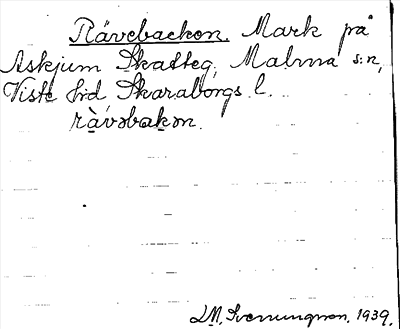 Rävebacken. Mark på
Askjum Skatteg, Malma s:n,
Viste hd Skaraborgs l.
rä̀vəbakən.
LM, Svenungsson, 1939.